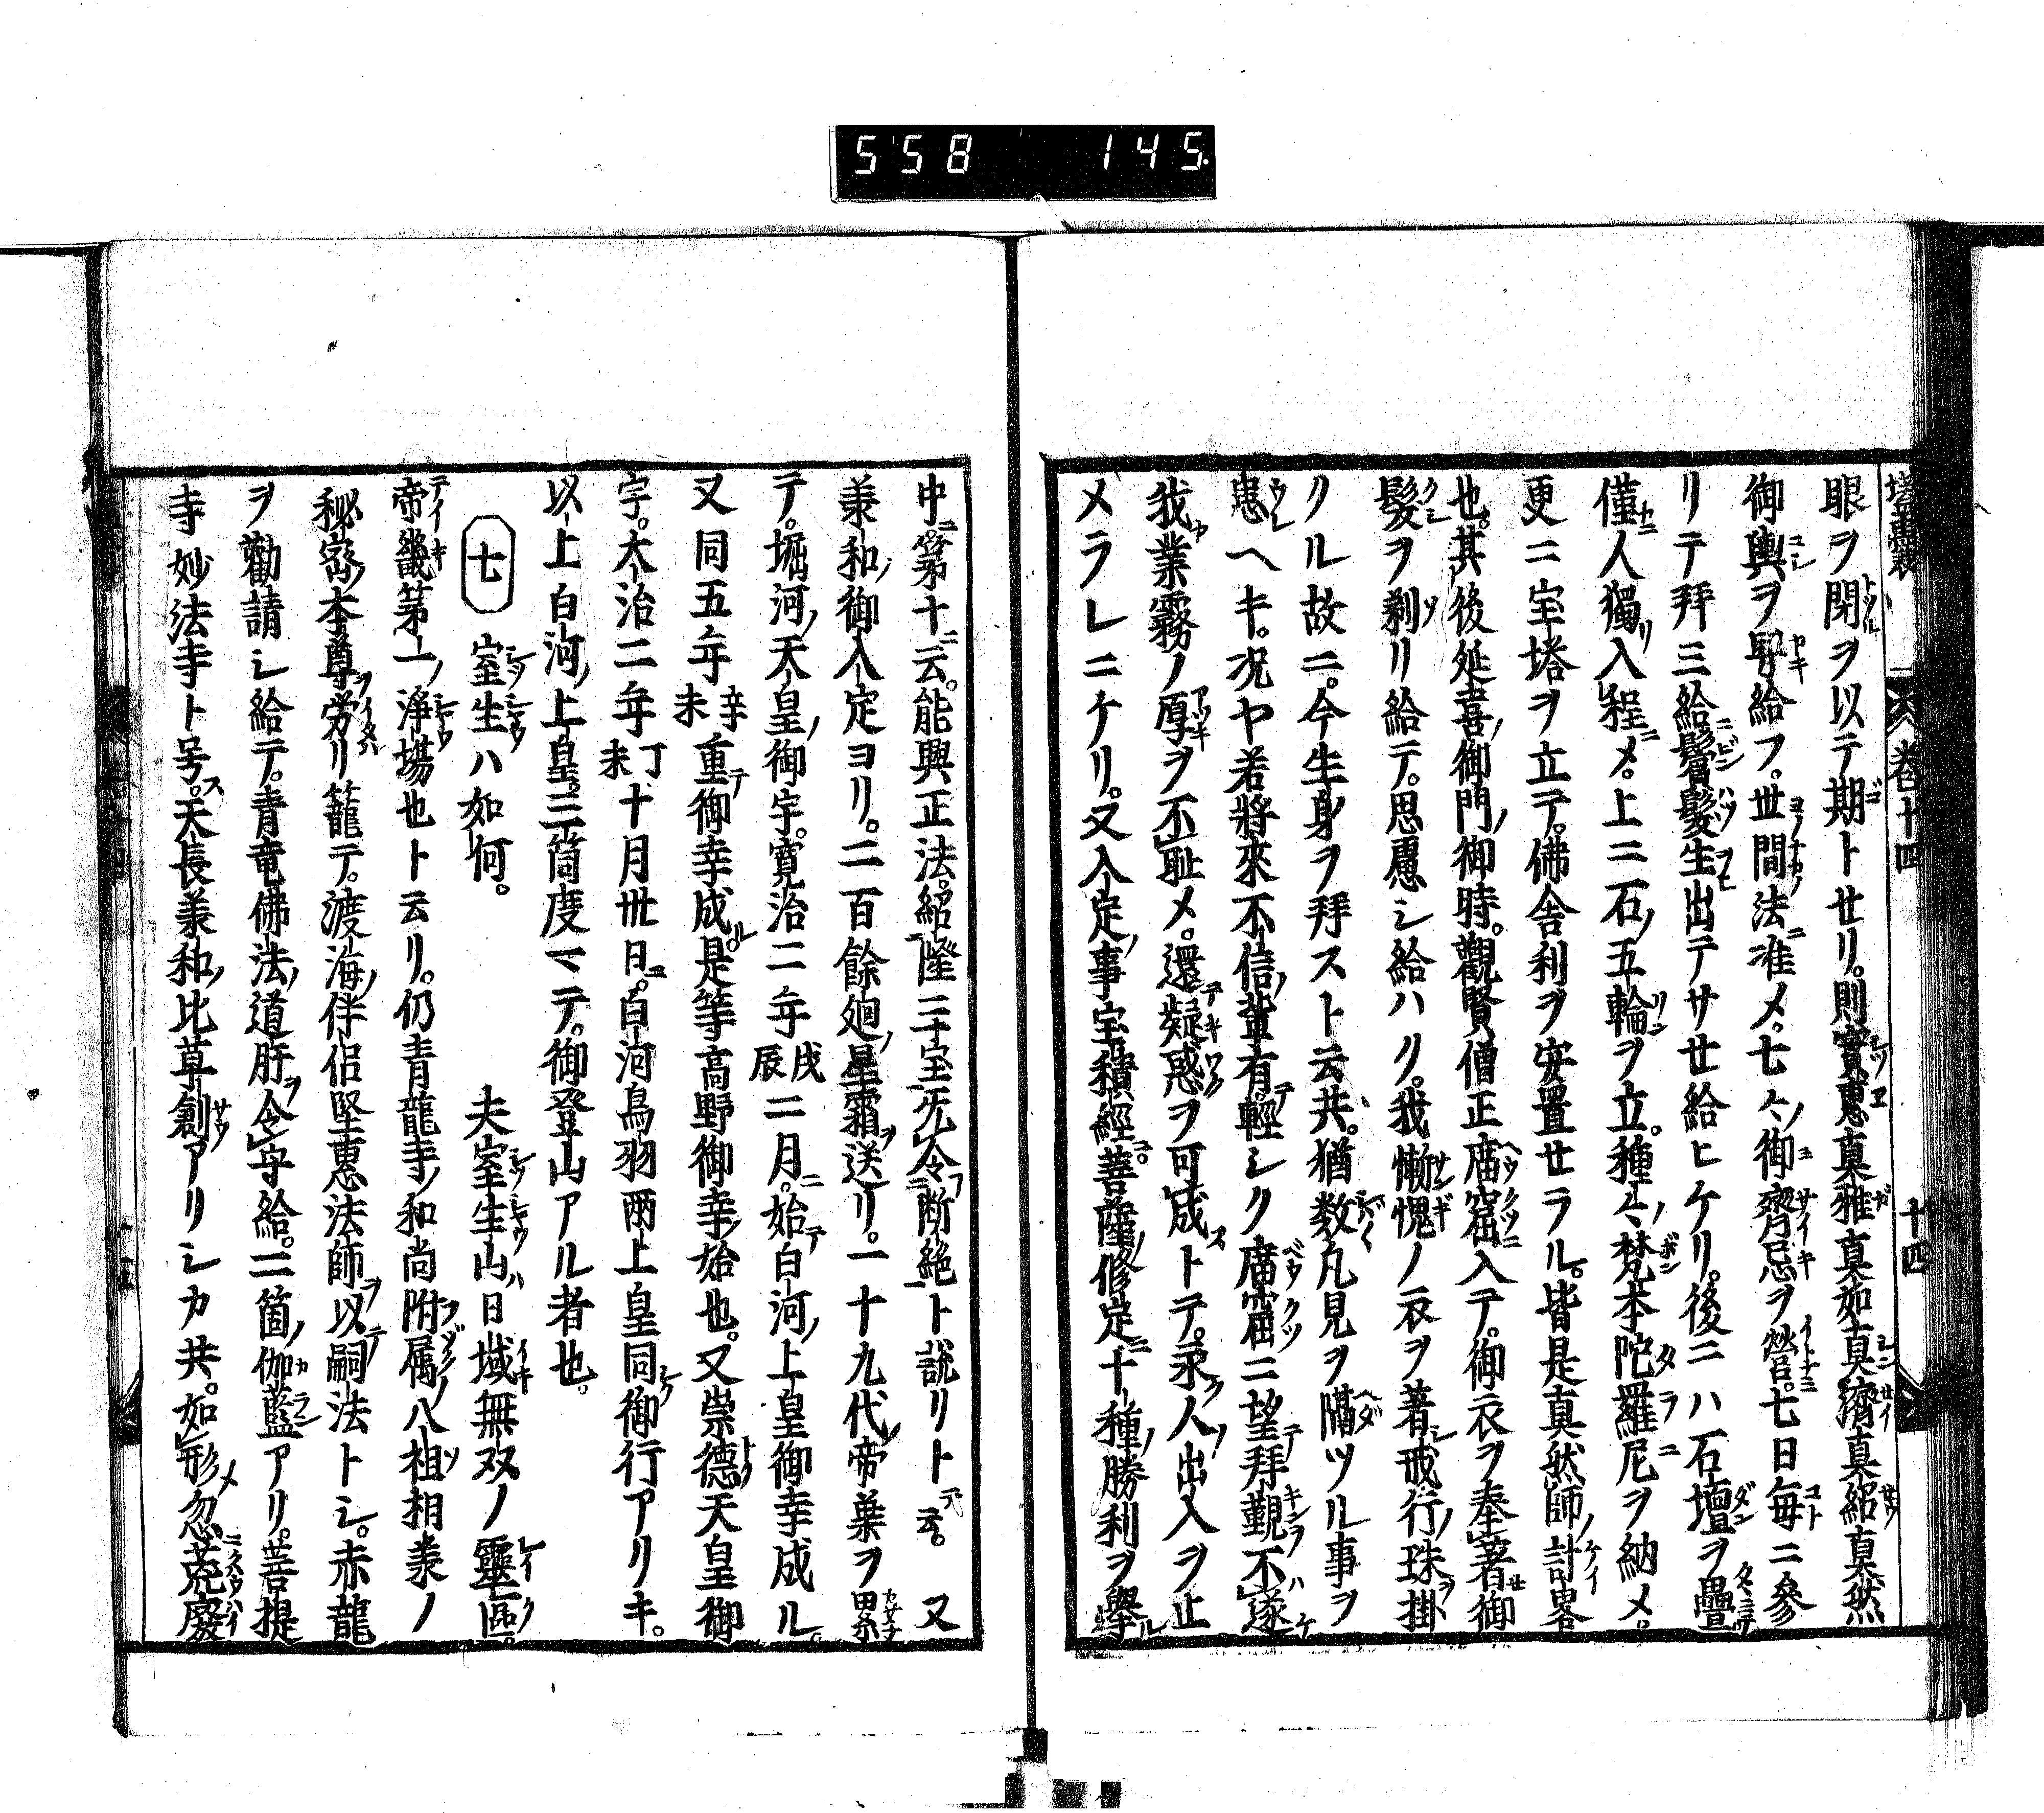 558 145.
塵嚢 巻十四 十四
眼ヲ閉ヲ以テ期トセリ。則實恵真雅真如真濟真紹真然
御輿ヲ舁給フ。世間法准メ。七々ノ御齊忌ヲ營。七日毎ニ參
リテ拜三給鬢髮生出テサセ給ヒケリ。後ニハ石壇ヲ疊
僅人獨入程メ。上ニ石ノ五輪ヲ立。種々ノ梵本陀羅尼ヲ納メ。
更ニ宝塔ヲ立テ。佛舎利ヲ安置セラル。皆是真然師ノ計畧
也。其後延喜ノ御門ノ御時。觀賢僧正庿窟入テ。御衣ヲ奉著御
髮ヲ剃リ給テ。思慮シ給ハク。我慚愧ノ衣ヲ著戒行ノ珠掛
クル故ニ。今生身ヲ拜ストト云共。猶数凡見ヲ隔ツル事ヲ
患ヘキ。况ヤ若將來不信ノ輩有。輕シク庿窟ニ望拜覲不遂
我業霧ノ厚ヲ不耻メ。還疑惑ヲ可成トテ。永人ノ出入ヲ止
メラレニケリ。又入定ノ事宝積經菩薩修定ニ十種ノ勝利ヲ擧ル
中。第十ニ云。能興正法。紹隆三宝。死令断絶ト說リト云。又
兼和ノ御入定ヨリ。二百餘廻ノ星霜ヲ送リ。一十九代ノ帝葉ヲ累
テ。堀河ノ天皇ノ御宇。寬治二年戊辰二月ニ。始テ白河ノ上皇御幸成ル。
又同五年辛未重テ御幸成ル。是等高野御幸ノ始也。又崇德天皇御
宇。大治二年丁未十月卅日ニ。白河鳥羽兩上皇同シク御行アリキ。
以上白河ノ上皇。三箇度マテ。御登山アル者也。
七 室生ハ如何。 夫室生山ハ日域無双ノ靈區。
帝畿第一ノ淨場也ト云リ。仍青龍寺ノ和尚附属ノ八祖相兼ノ
秘密ノ本尊ヲ労リ籠テ。渡海ノ伴侶堅恵法師ヲ以テ嗣法トシ。赤龍
ヲ勸請シ給テ。青竜佛法ノ道肝ヲ令守給。二箇ノ伽藍アリ。菩提
寺妙法寺ト号ス。天長兼和ノ比草創アリシカ共。如形メ忽荒廢